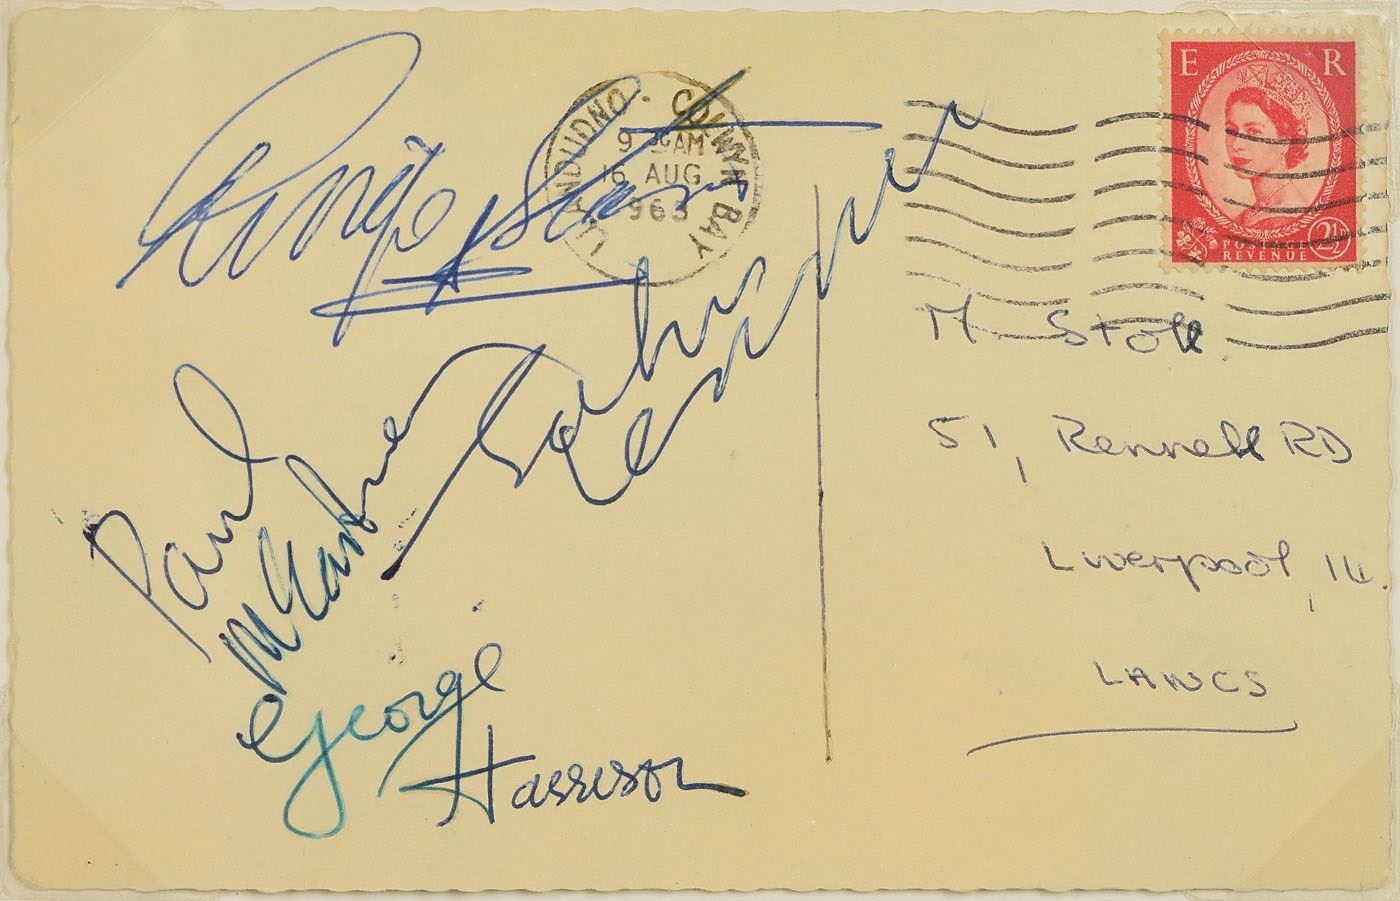 Ringo Starr
LLANDUDNO - COLWYN BAY
9 30 AM
16 AUG
1963
E R
POSTAGE
REVENUE
2½
John Lennon
Paul
McCartney
George
Harrison
M. Stoll.
51, Rennell RD
Liverpool, 14.
LANCS